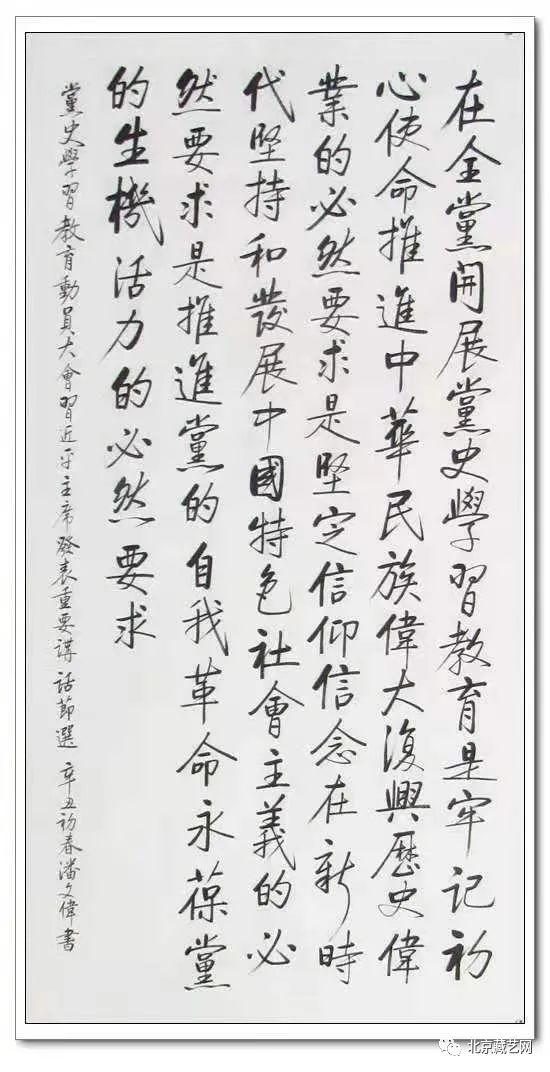 在全黨開展黨史學習教育是牢記初
心使命推進中華民族偉大復興歷史偉
業的必然要求是堅定信仰信念在新時
代堅持和發展中國特色社會主義的必
然要求是推進黨的自我革命永葆黨
的生機活力的必然要求
黨史學習教育動員大會習近平主席發表重要講話節選 辛丑初春潘文偉書
北京藏艺网